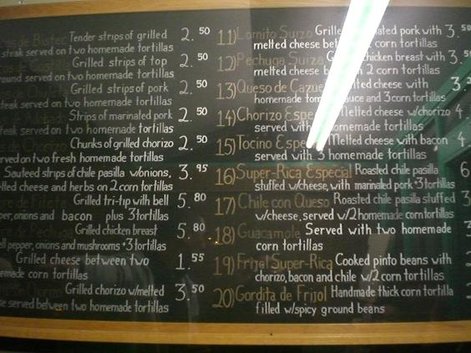 Tender strips of grilled 2.50
steak served on two homemade tortillas
Grilled strips of top 2.50
served on two homemade tortillas
Grilled strips of pork 2.50
steak served on two homemade tortillas
Strips of marinated pork 2.50
served on two homemade tortillas
Chunks of grilled chorizo 2.50
served on two fresh homemade tortillas
Sauteed strips of chile pasilla w/onions, 3.95
melted cheese and herbs on 2 corn tortillas
Grilled tri-tip with bell 5.80
pepper, onions and bacon plus 3 tortillas
Grilled chicken breast 5.80
bell pepper, onions and mushrooms +3 tortillas
Grilled cheese between two 1.55
homemade corn tortillas
Grilled chorizo w/melted 3.50
cheese served between two homemade tortillas
11) Lomito Suizo Grilled marinated pork with 3.50
melted cheese between 2 corn tortillas
12) Pechuga Suiza Grilled chicken breast with 3.
melted cheese between 2 corn tortillas
13) Queso de Cazuela Melted cheese with 3.
homemade tomato sauce and 3 corn tortillas
14) Chorizo Especial Melted cheese w/chorizo 4
served with homemade tortillas
15) Tocino Especial Melted cheese with bacon 4
served with 3 homemade tortillas
16) Super-Rica Especial Roasted chile pasilla
stuffed w/cheese, with marinated pork +3 tortillas
17) Chile con Queso Roasted chile pasilla stuffed 3
w/cheese, served w/2 homemade corn tortillas
18) Guacamole Served with two homemade
corn tortillas
19) Frijol Super-Rica Cooked pinto beans with
chorizo, bacon and chile w/2 corn tortillas
20) Gordita de Frijol Handmade thick corn tortilla
filled w/spicy ground beans